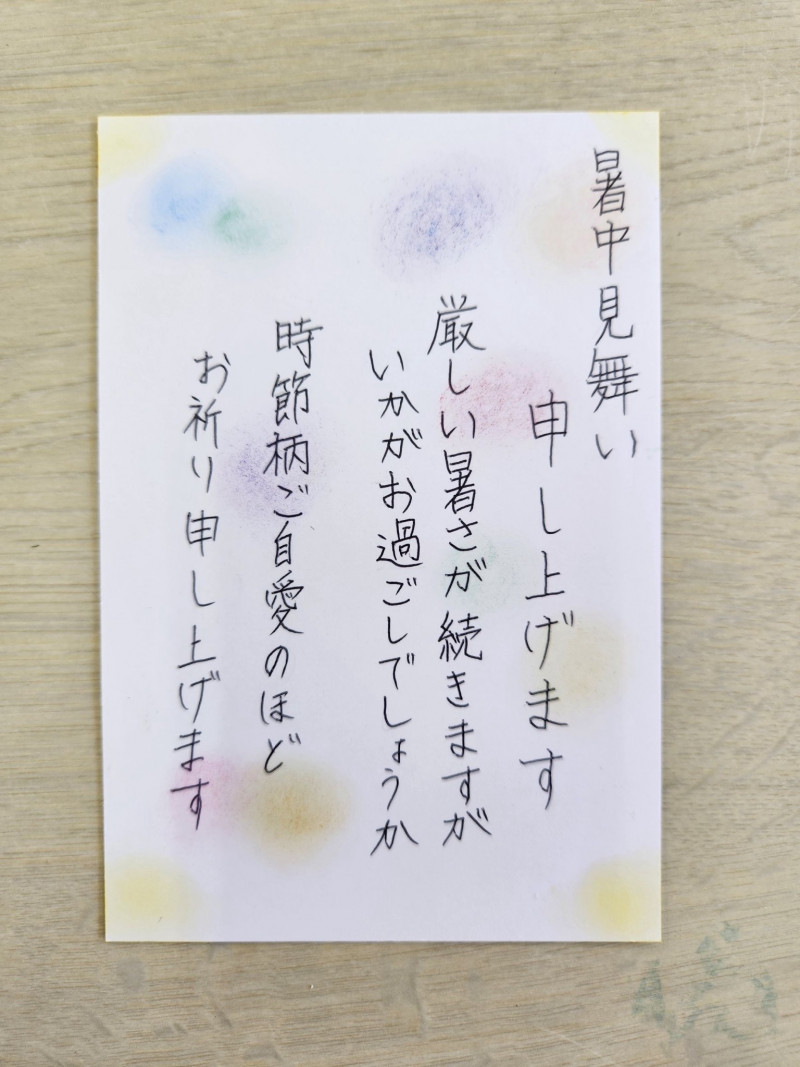 暑中見舞い
申し上げます
厳しい暑さが続きますが
いかがお過ごしでしょうか
時節柄ご自愛のほど
お祈り申し上げます